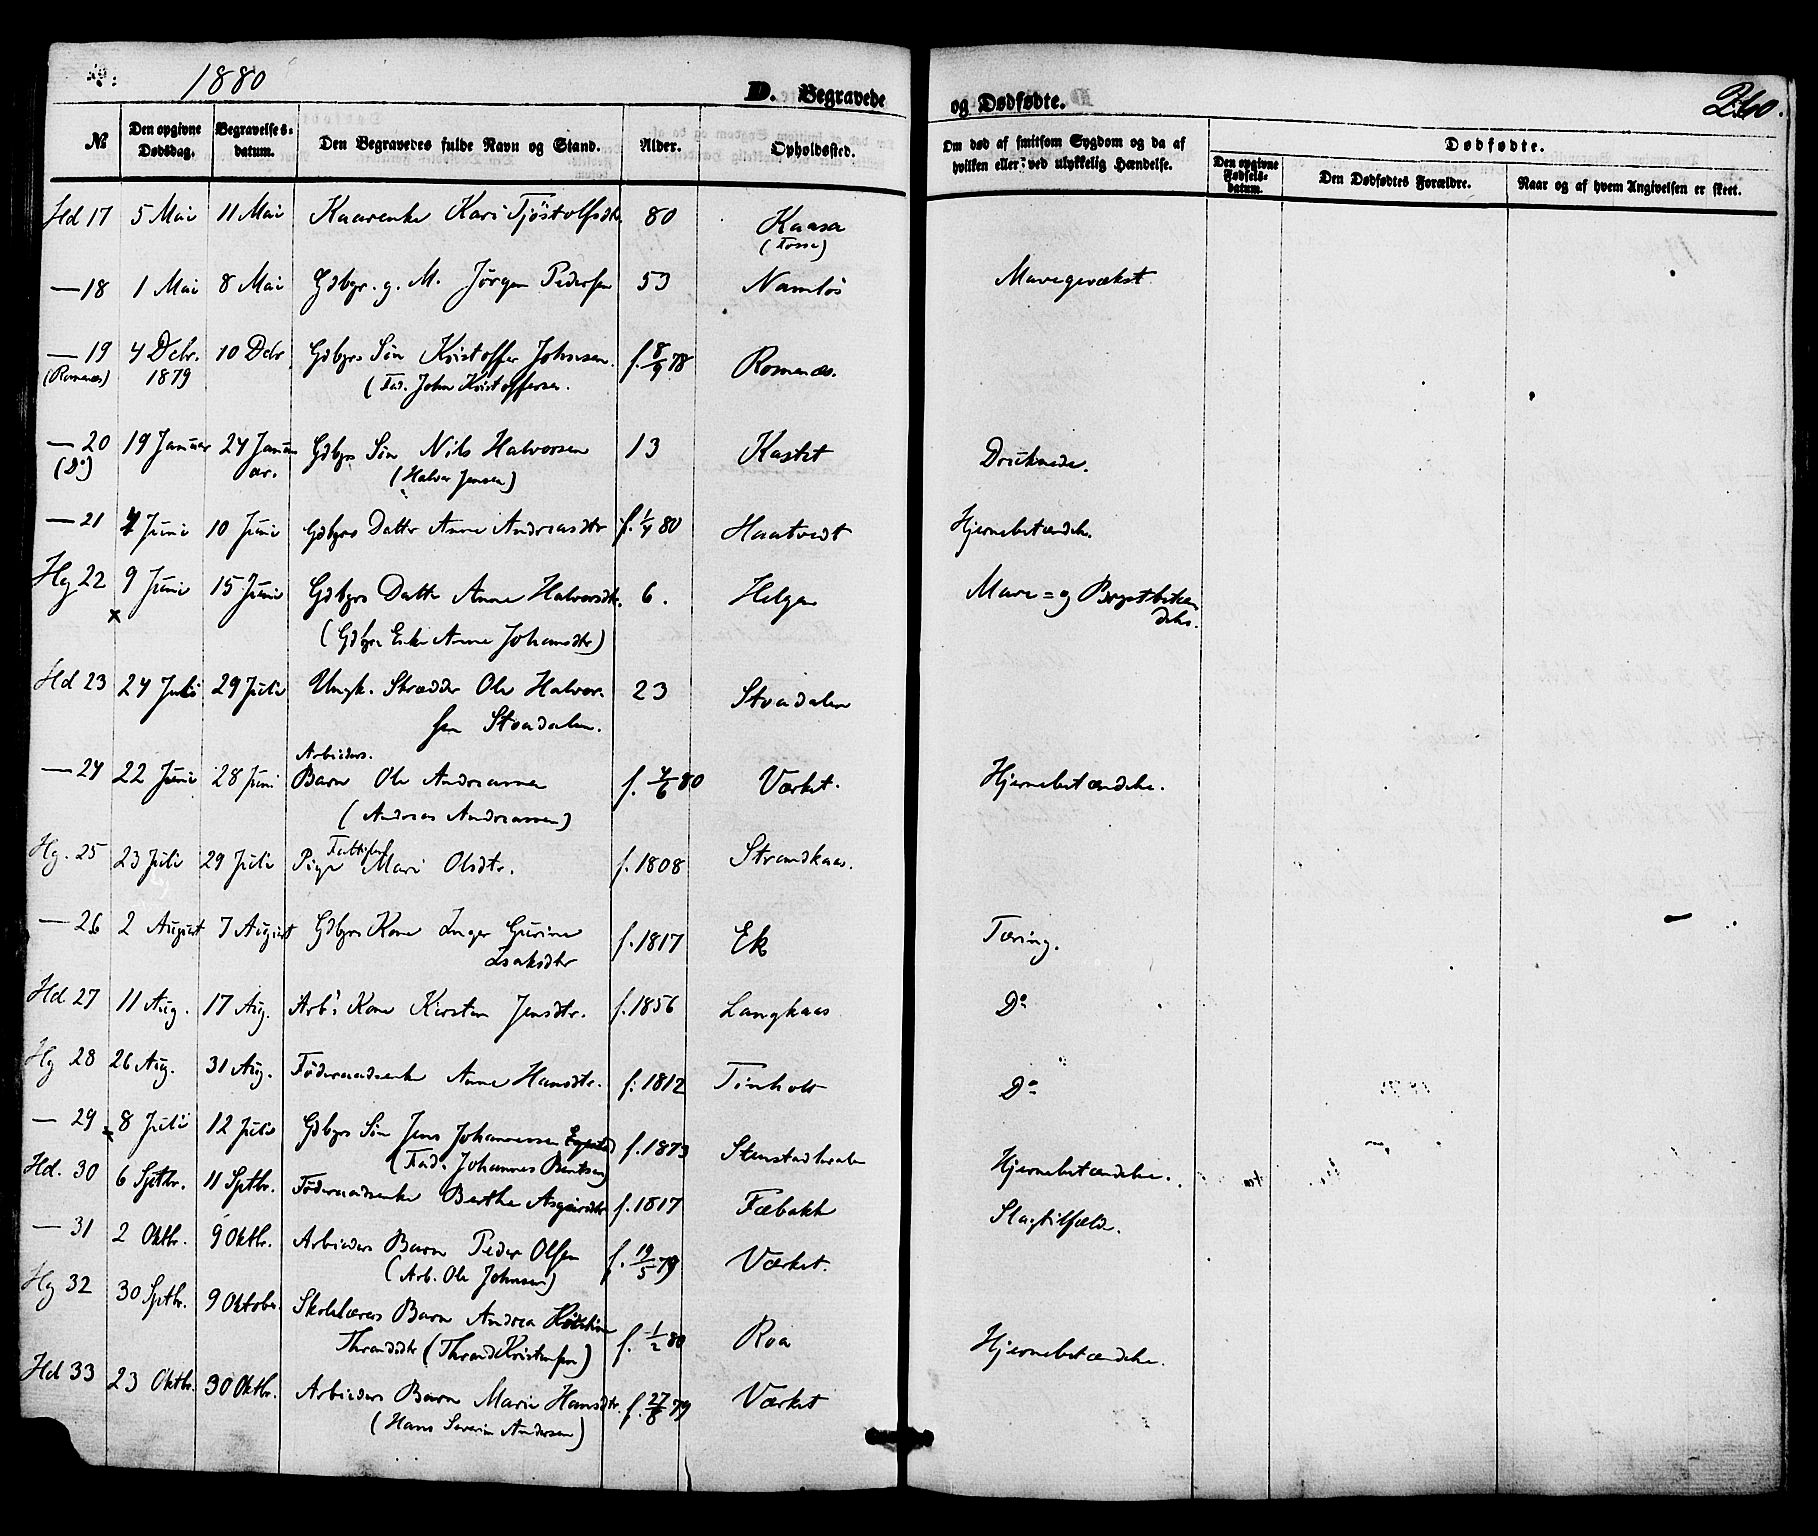 1880
D. Begravede
og Dødfødte.
260.
№ Den opgivne Dødsdag. Begravelses-datum. Den Begravedes fulde Navn og Stand. Alder. Opholdssted. Om død af smitsom Sygdom og da af hvilken eller: ved ulykkelig Hændelse. Den opgivne Fødsels-datum. Den Dødfødtes Forældre. Naar og af hvem Angivelsen er skeet.
Dødfødte.
Hd 17 5 Mai 11 Mai Kaarenke Kari Tjöstolfsdtr. 80 Kaasa
(Fosse)
—18 1 Mai 8 Mai Gdbgr. g. M. Jørgen Pedersen 53 Namløs Mavegevækst
—19 4 Debr. 10 Debr Gdbgrs Søn Kristoffer Johnsen. f. 8/9 78 Romenæs.
(Romenæs) 1879 (Fad. John Kristoffersen.
—20 19 Januar 24 Janu Gdbgrs Søn Nils Halvorsen 13 Kastet Druknede.
(Do) ar. (Halvor Jensen)
—21 4 Juni 10 Juni Gdbgrs Datter Anne Andreasdtr f. 1/4 80 Haatvedt Hjernebetændelse.
Hg 22 9 Juni 15 Juni Gdbgrs Datter Anne Halvorsdtr. 6. Helgen Mave= og Brystbetæn
x (Gdbgrs Enke Anne Johansdtr) delse.
Hd 23 24 Juli 29 Juli Ungk. Skrædder Ole Halvor- 23 Stvadalen
sen Stvadalen.
Arbeiders.
—24 22 Juni 28 Juni Barn Ole Andreassen f. 4/6 80 Værket. Hjernebetændelse.
(Andreas Andreassen)
Hg. 25 23 Juli 29 Juli Pige Mari Olsdtr. f. 1808 Strandkaas.
—26 2 August 7 August Gdbgrs Kone Inger Gurine f. 1817 Ek Tæring.
Isaksdtr
Hd 27 11 Aug. 17 Aug. Arb's Kone Kirsten Jensdtr. f. 1856 Langkaas Do
Hg 28 26 Aug. 31 Aug. Føderaadsenke Anne Hansdtr. f. 1812 Tinholt Do
—29 x 8 Juli 12 Juli Gdbgrs Søn Jens Johannessen f. 1873 Stenstadbraaten Hjernebetændelse.
(Fad. Johannes Bentsen)
Hd. 30 6 Sptbr. 11 Sptbr. Føderaadsenke Berthe Asgeirsdtr f. 1817 Fæbakk Slagtilfælde.
—31 2 Oktbr. 9 Oktbr. Arbeiders Barn Peder Olsen f. 19/5 79 Værket.
(Arb. Ole Johnsen)
Hg 32 30 Sptbr. 9 Oktober Skolelærers Barn Andrea Kristine f. 1/2 80 Roa Hjernebetændelse.
Thrandsdtr (Thrand Kristensen)
Hd 33 23 Oktbr. 30 Oktbr. Arbeiders Barn Marie Hansdtr. f. 27/8 79 Værket
(Hans Severin Andersen)